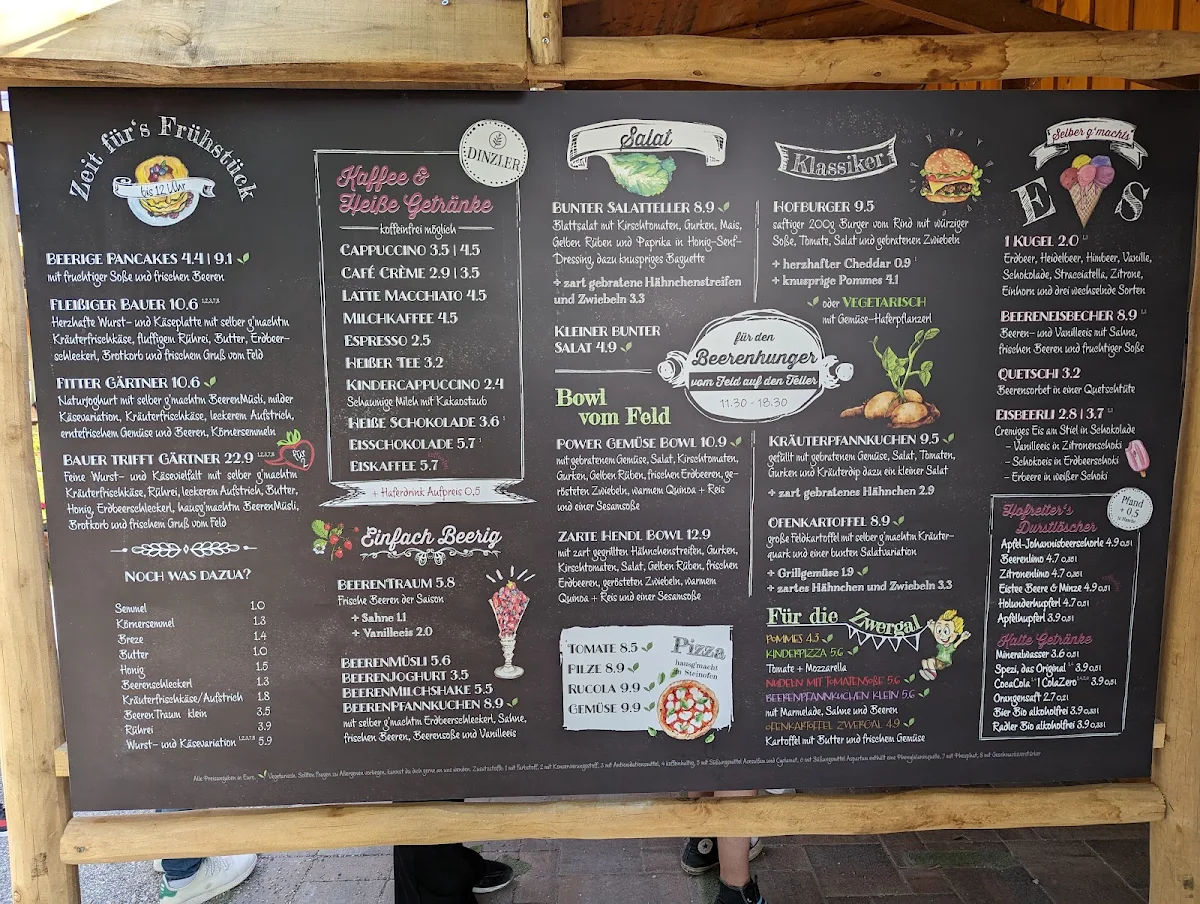 Zeit für's Frühstück
bis 12 Uhr
BEERIGE PANCAKES 4.4 | 9.1
mit fruchtiger Soße und frischen Beeren
FLEIßIGER BAUER 10.6
Herzhafte Wurst- und Käseplatte mit selber g'machtm
Kräuterfrischkäse, fluffigem Rührei, Butter, Erdbeer-
schleckerl, Brotkorb und frischem Gruß vom Feld
FITTER GÄRTNER 10.6
Naturjoghurt mit selber g'machtm BeerenMüsli, milder
Käsevariation, Kräuterfrischkäse, leckerem Aufstrich,
erntefrischem Gemüse und Beeren, Körnersemmeln
BAUER TRIFFT GÄRTNER 22.9
für 2
Feine Wurst- und Käsevielfalt mit selber g'machtm
Kräuterfrischkäse, Rührei, leckerem Aufstrich, Butter,
Honig, Erdbeerschleckerl, hausg'machtm BeerenMüsli,
Brotkorb und frischem Gruß vom Feld
NOCH WAS DAZUA?
Semmel 1.0
Körnersemmel 1.3
Breze 1.4
Butter 1.0
Honig 1.5
Beerenschleckerl 1.3
Kräuterfrischkäse/Aufstrich 1.8
BeerenTraum klein 3.5
Rührei 3.9
Wurst- und Käsevariation 5.9
DINZLER
Kaffee &
Heiße Getränke
koffeinfrei möglich
CAPPUCCINO 3.5 | 4.5
CAFÉ CRÈME 2.9 | 3.5
LATTE MACCHIATO 4.5
MILCHKAFFEE 4.5
ESPRESSO 2.5
HEIßER TEE 3.2
KINDERCAPPUCCINO 2.4
Schaumige Milch mit Kakaostaub
HEIßE SCHOKOLADE 3.6
EISSCHOKOLADE 5.7
EISKAFFEE 5.7
+ Haferdrink Aufpreis 0,5
Einfach Beerig
BEERENTRAUM 5.8
Frische Beeren der Saison
+ Sahne 1.1
+ Vanilleeis 2.0
BEERENMÜSLI 5.6
BEERENJOGHURT 3.5
BEERENMILCHSHAKE 5.5
BEERENPFANNKUCHEN 8.9
mit selber g'machtm Erdbeerschleckerl, Sahne,
frischen Beeren, Beerensoße und Vanilleeis
Salat
BUNTER SALATTELLER 8.9
Blattsalat mit Kirschtomaten, Gurken, Mais,
Gelben Rüben und Paprika in Honig-Senf-
Dressing, dazu knuspriges Baguette
+ zart gebratene Hähnchenstreifen
und Zwiebeln 3.3
KLEINER BUNTER
SALAT 4.9
für den
Beerenhunger
vom Feld auf den Teller
11.30 - 18.30
Bowl
vom Feld
POWER GEMÜSE BOWL 10.9
mit gebratenem Gemüse, Salat, Kirschtomaten,
Gurken, Gelben Rüben, frischen Erdbeeren, ge-
rösteten Zwiebeln, warmem Quinoa + Reis
und einer Sesamsoße
ZARTE HENDL BOWL 12.9
mit zart gegrillten Hähnchenstreifen, Gurken,
Kirschtomaten, Salat, Gelben Rüben, frischen
Erdbeeren, gerösteten Zwiebeln, warmem
Quinoa + Reis und einer Sesamsoße
Pizza
hausg'macht
im Steinofen
TOMATE 8.5
PILZE 8.9
RUCOLA 9.9
GEMÜSE 9.9
Klassiker
HOFBURGER 9.5
saftiger 200g Burger vom Rind mit würziger
Soße, Tomate, Salat und gebratenen Zwiebeln
+ herzhafter Cheddar 0.9
+ knusprige Pommes 4.1
oder VEGETARISCH
mit Gemüse-Haferpflanzerl
KRÄUTERPFANNKUCHEN 9.5
gefüllt mit gebratenem Gemüse, Salat, Tomaten,
Gurken und Kräuterdip dazu ein kleiner Salat
+ zart gebratenes Hähnchen 2.9
OFENKARTOFFEL 8.9
große Feldkartoffel mit selber g'machtm Kräuter-
quark und einer bunten Salatvariation
+ Grillgemüse 1.9
+ zartes Hähnchen und Zwiebeln 3.3
Für die Zwergal
POMMES 4.5
KINDERPIZZA 5.6
Tomate + Mozzarella
NUDELN MIT TOMATENSOßE 5.6
BEERENPFANNKUCHEN KLEIN 5.6
mit Marmelade, Sahne und Beeren
OFENKARTOFFEL ZWERGAL 4.9
Kartoffel mit Butter und frischem Gemüse
Selber g'machts
EIS
1 KUGEL 2.0
Erdbeer, Heidelbeer, Himbeer, Vanille,
Schokolade, Stracciatella, Zitrone,
Einhorn und drei wechselnde Sorten
BEERENEISBECHER 8.9
Beeren- und Vanilleeis mit Sahne,
frischen Beeren und fruchtiger Soße
QUETSCHI 3.2
Beerensorbet in einer Quetschtüte
EISBEERLI 2.8 | 3.7
Cremiges Eis am Stiel in Schokolade
- Vanilleeis in Zitronenschoki
- Schokoeis in Erdbeerschoki
- Erbeere in weißer Schoki
Pfand
+ 0,5
Hofreiter's
Durstlöscher
Apfel-Johannisbeerschorle 4.9 0,5l
Beerenlimo 4.7 0,35l
Zitronenlimo 4.7 0,35l
Eistee Beere & Minze 4.9 0,5l
Holunderhupferl 4.7 0,5l
Apfelhupferl 3.9 0,5l
Kalte Getränke
Mineralwasser 3.6 0,5l
Spezi, das Original 3.9 0,5l
CocaCola | ColaZero 3.9 0,5l
Orangensaft 2.7 0,2l
Bier Bio alkoholfrei 3.9 0,33l
Radler Bio alkoholfrei 3.9 0,33l
Alle Preisangaben in Euro. Vegetarisch. Sollten Fragen zu Allergenen vorliegen, kannst du dich gerne an uns wenden. Zusatzstoffe: 1 mit Farbstoff, 2 mit Konservierungsstoff, 3 mit Antioxidationsmittel, 4 koffeinhaltig, 5 mit Süßungsmittel Acesulfam und Cyclamat, 6 mit Süßungsmittel Aspartam enthält eine Phenylalaninquelle, 7 mit Phosphat, 8 mit Geschmacksverstärker